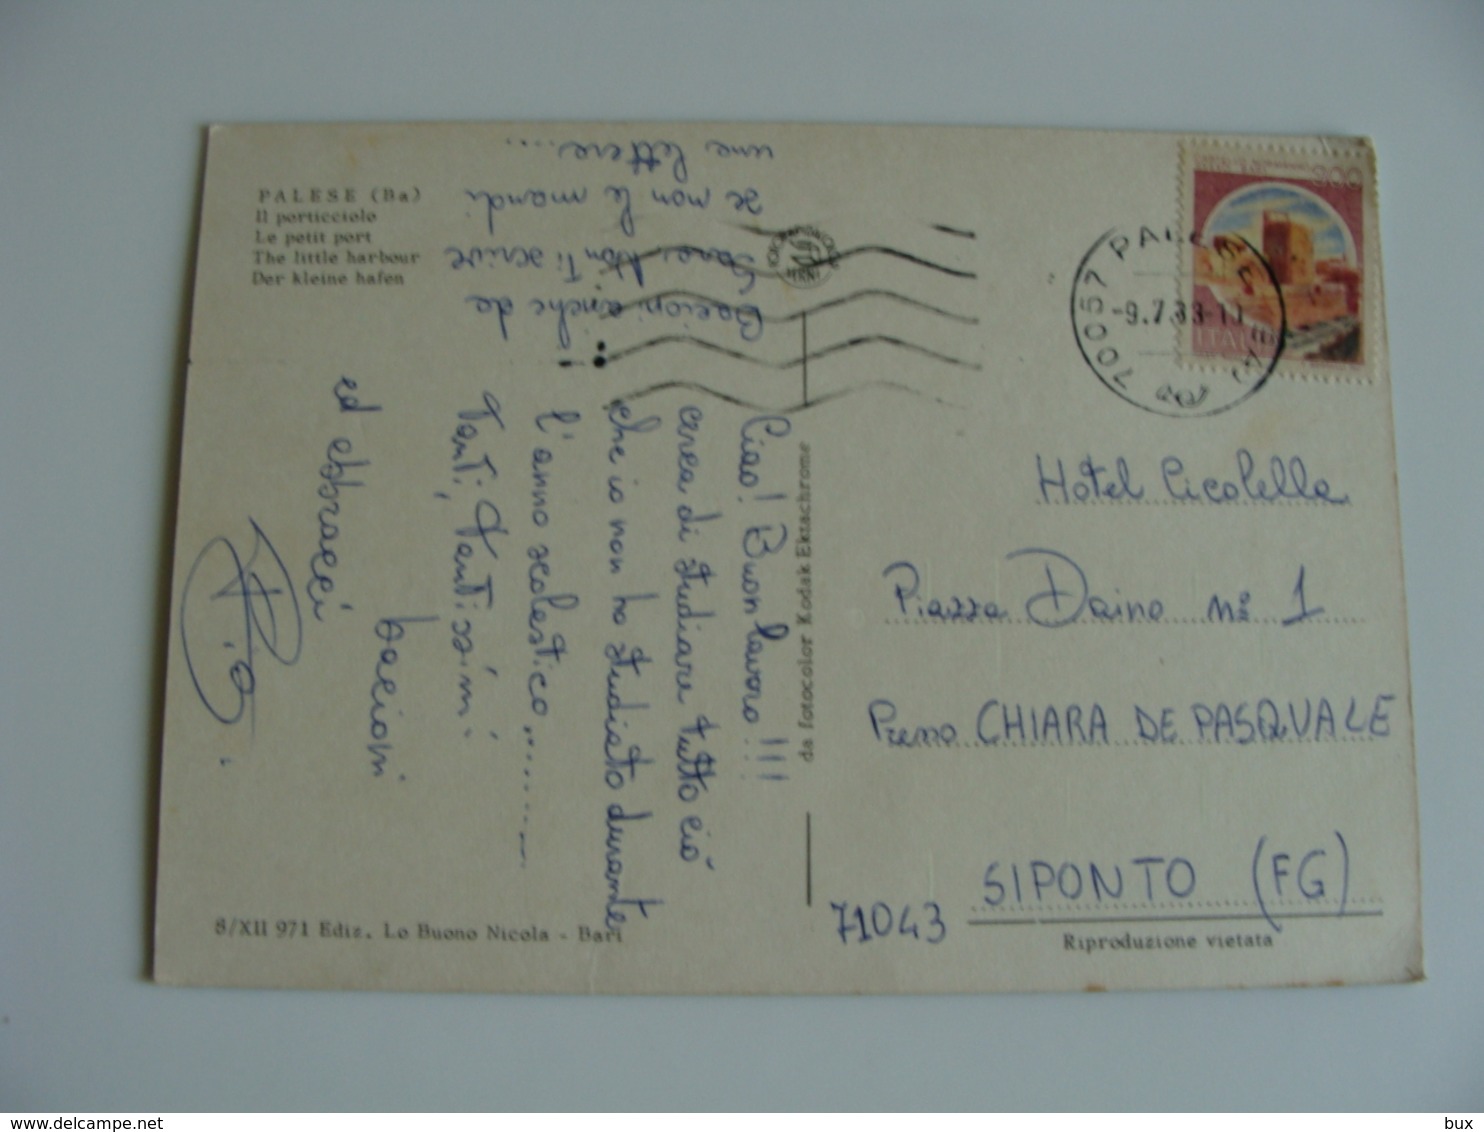 PALESE (Ba)
Il porticciolo
Le petit port
The little harbour
Der kleine hafen
Ciao! Buon lavoro!!!
cerca di studiare tutto ciò
che io non ho studiato durante
l'anno scolastico..........
Tanti, Tantissimi
bacioni
ed abbracci
Bacioni anche da
Non Ti scrive
se non le mandi
una lettera....
da fotocolor Kodak Ektachrome
8/XII 971 Ediz. Lo Buono Nicola - Bari
300
ITALIA
70057 PALESE
-9.7.83-11
Hotel Cicolella
Piazza Daino n° 1
Presso CHIARA DE PASQUALE
71043
SIPONTO (FG)
Riproduzione vietata
www.delcampe.net
bux